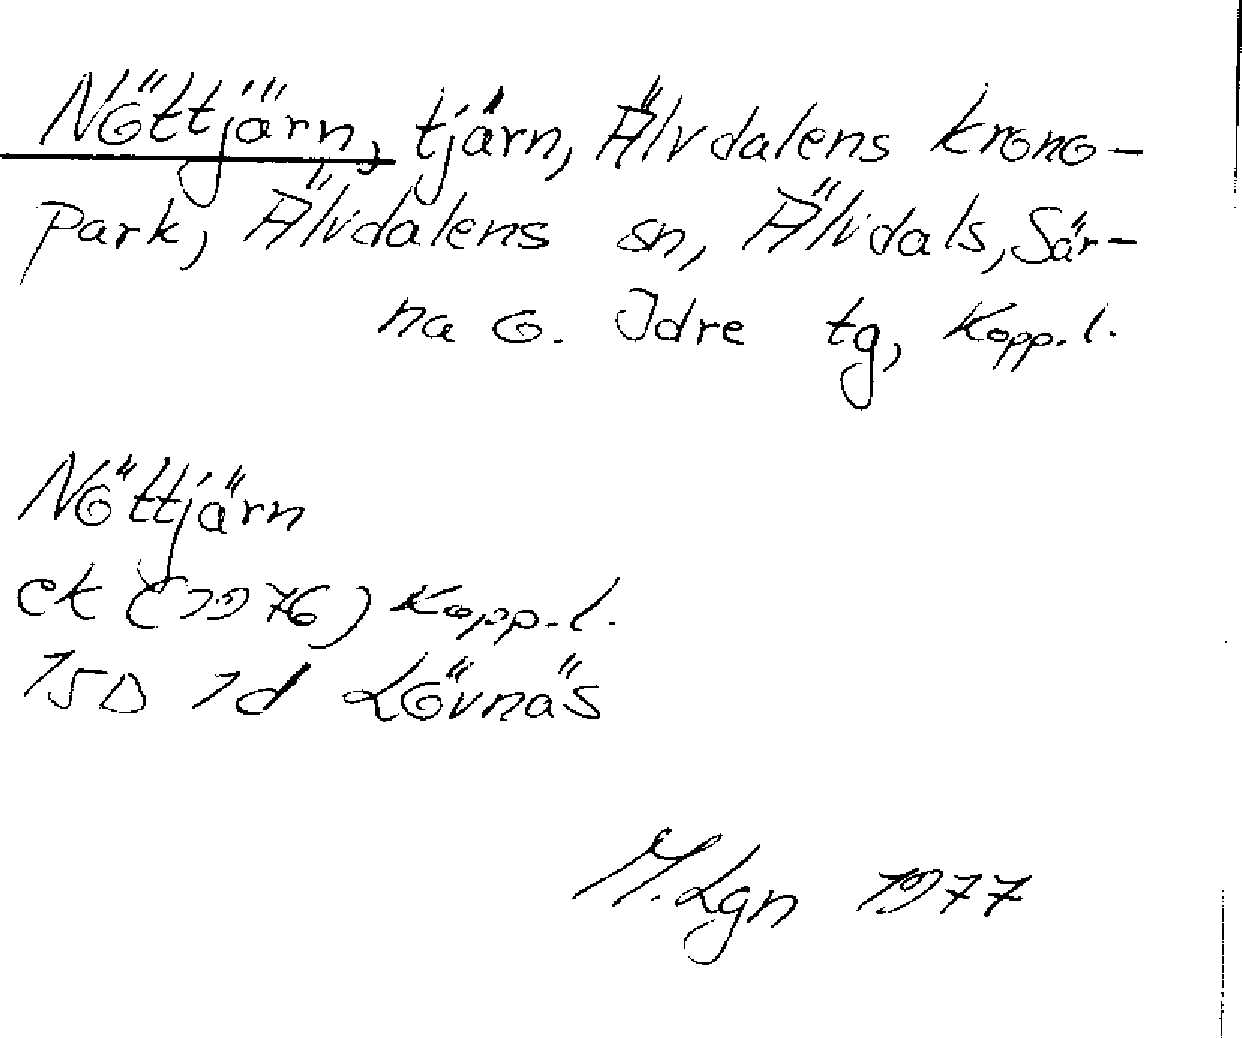 Nöttjärn, tjärn, Älvdalens krono-
park, Älvdalens sn, Älvdals, Sär-
na o. Idre tg, Kopp. l.
Nöttjärn
ek (1976) Kopp. l.
15D 1d Lövnäs
M. Lgn 1977